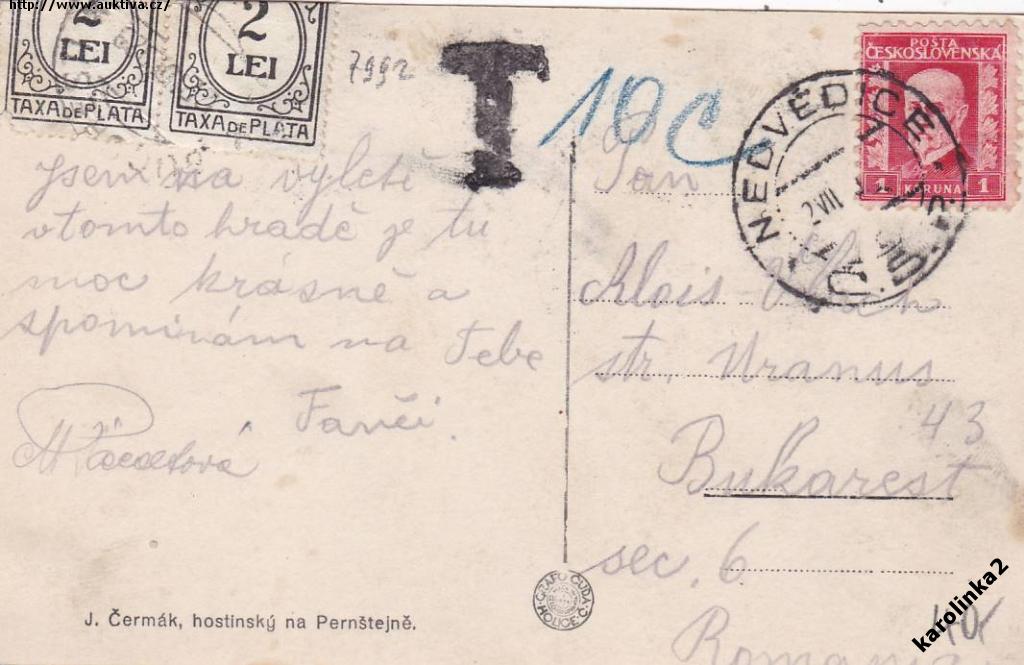 http://www.auktiva.cz/
2 LEI
TAXA DE PLATA
2 LEI
TAXA DE PLATA
7992
T
10 c
POŠTA
ČESKOSLOVENSKÁ
1 KORUNA 1
NEDVĚDICE
2 VII
Jsem na výletě
v tomto hradě je tu
moc krásně a
spomínám na Tebe
Fanči.
Pan
Alois
str. Uranus
43
Bukarest
sec. 6
Romania
J. Čermák, hostinský na Pernštejně.
GRAFO ČUDA HOLICE Č.
40,
karolinka2